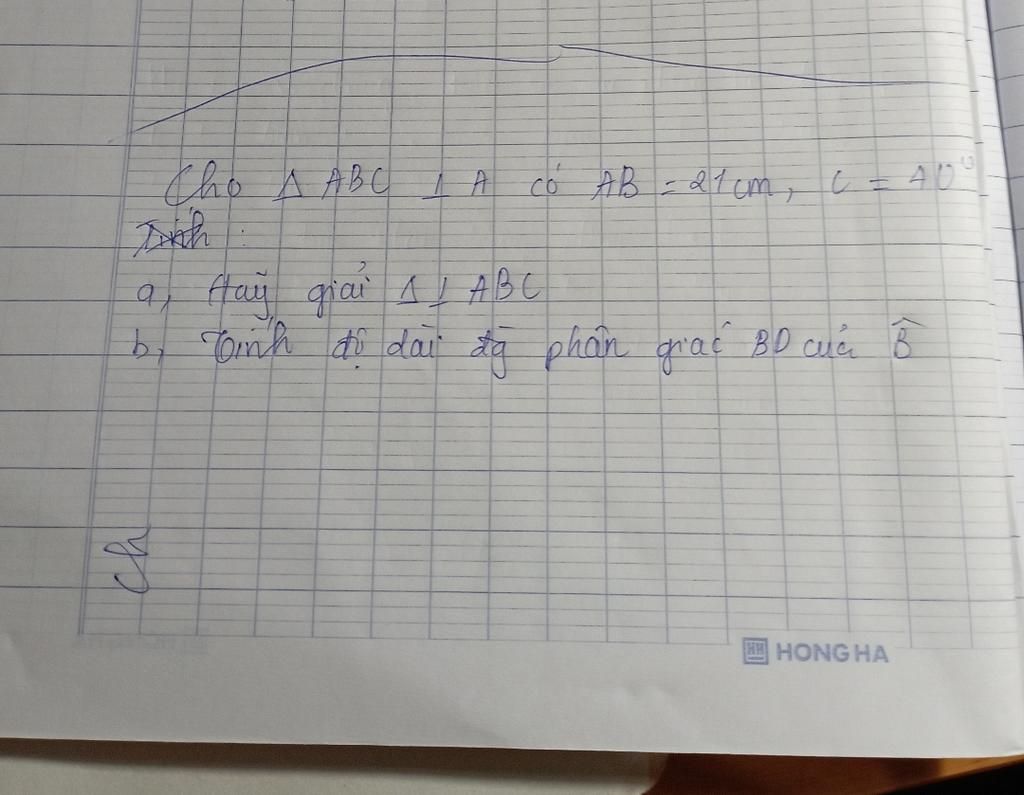 Cho Δ ABC ⊥ A có AB = 21 cm, C = 40°
Tính :
a, Hãy giải Δ ⊥ ABC
b, Tính độ dài đg phân giác BD của B̂
Ch
HH HONG HA